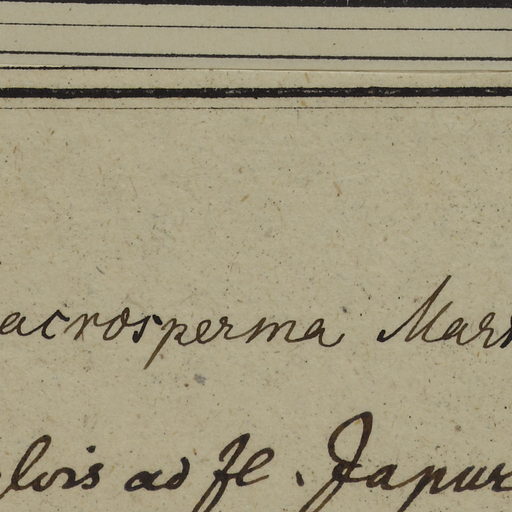 acrosperma Mart
lvis ad fl. Japur